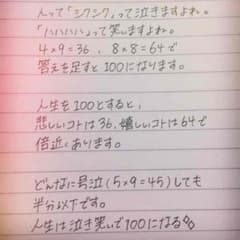 人って「シクシク」って泣きますよね。
「ハハハハ」って笑いますよね。
4×9=36、8×8=64で
答えを足すと100になります。
人生を100とすると、
悲しいコトは36、嬉しいコトは64で
倍近くあります。
どんなに号泣(5×9=45)しても
半分以下です。
人生は泣き笑いで100になる%